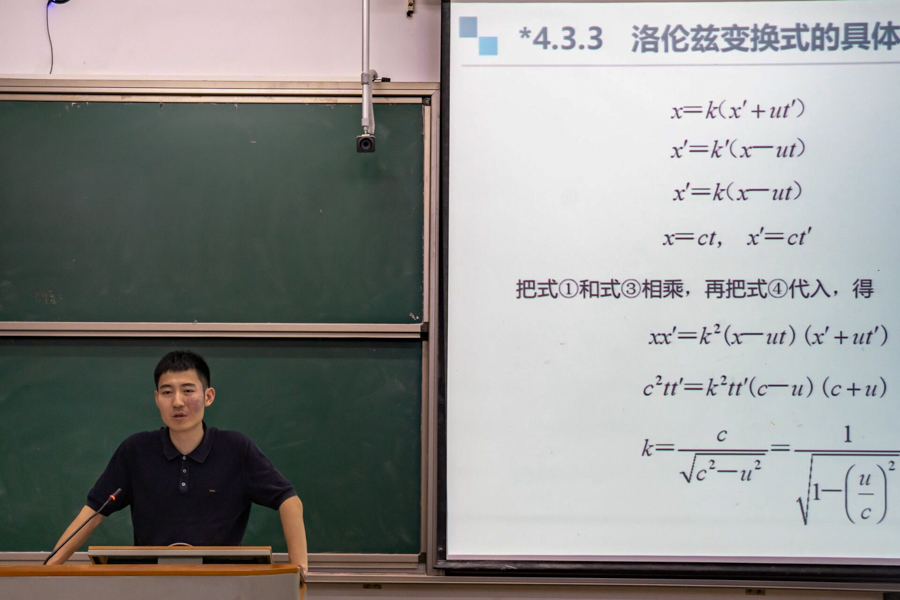 *4.3.3 洛伦兹变换式的具体
x=k(x′+ut′)
x′=k′(x−ut)
x′=k(x−ut)
x=ct, x′=ct′
把式①和式③相乘，再把式④代入，得
xx′=k²(x−ut)(x′+ut′)
c²tt′=k²tt′(c−u)(c+u)
k=c/√(c²−u²)=1/√(1−(u/c)²)